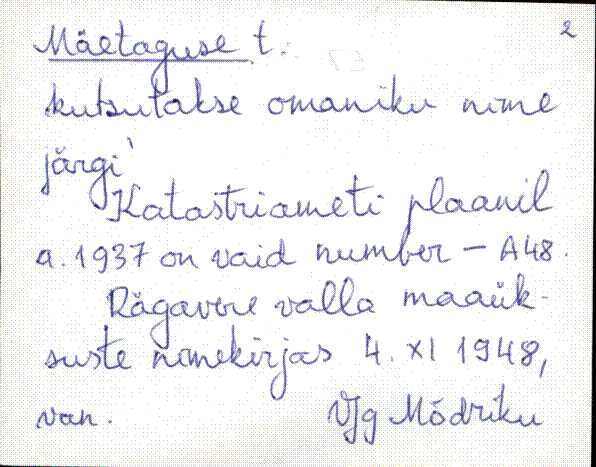 2
Mäetaguse t.
kutsutakse omaniku nime
järgi
Katastriameti plaanil
a. 1937 on vaid number – A48.
Rägavere valla maaük-
suste nimekirjas 4. XI 1948,
van. VJg Mõdriku